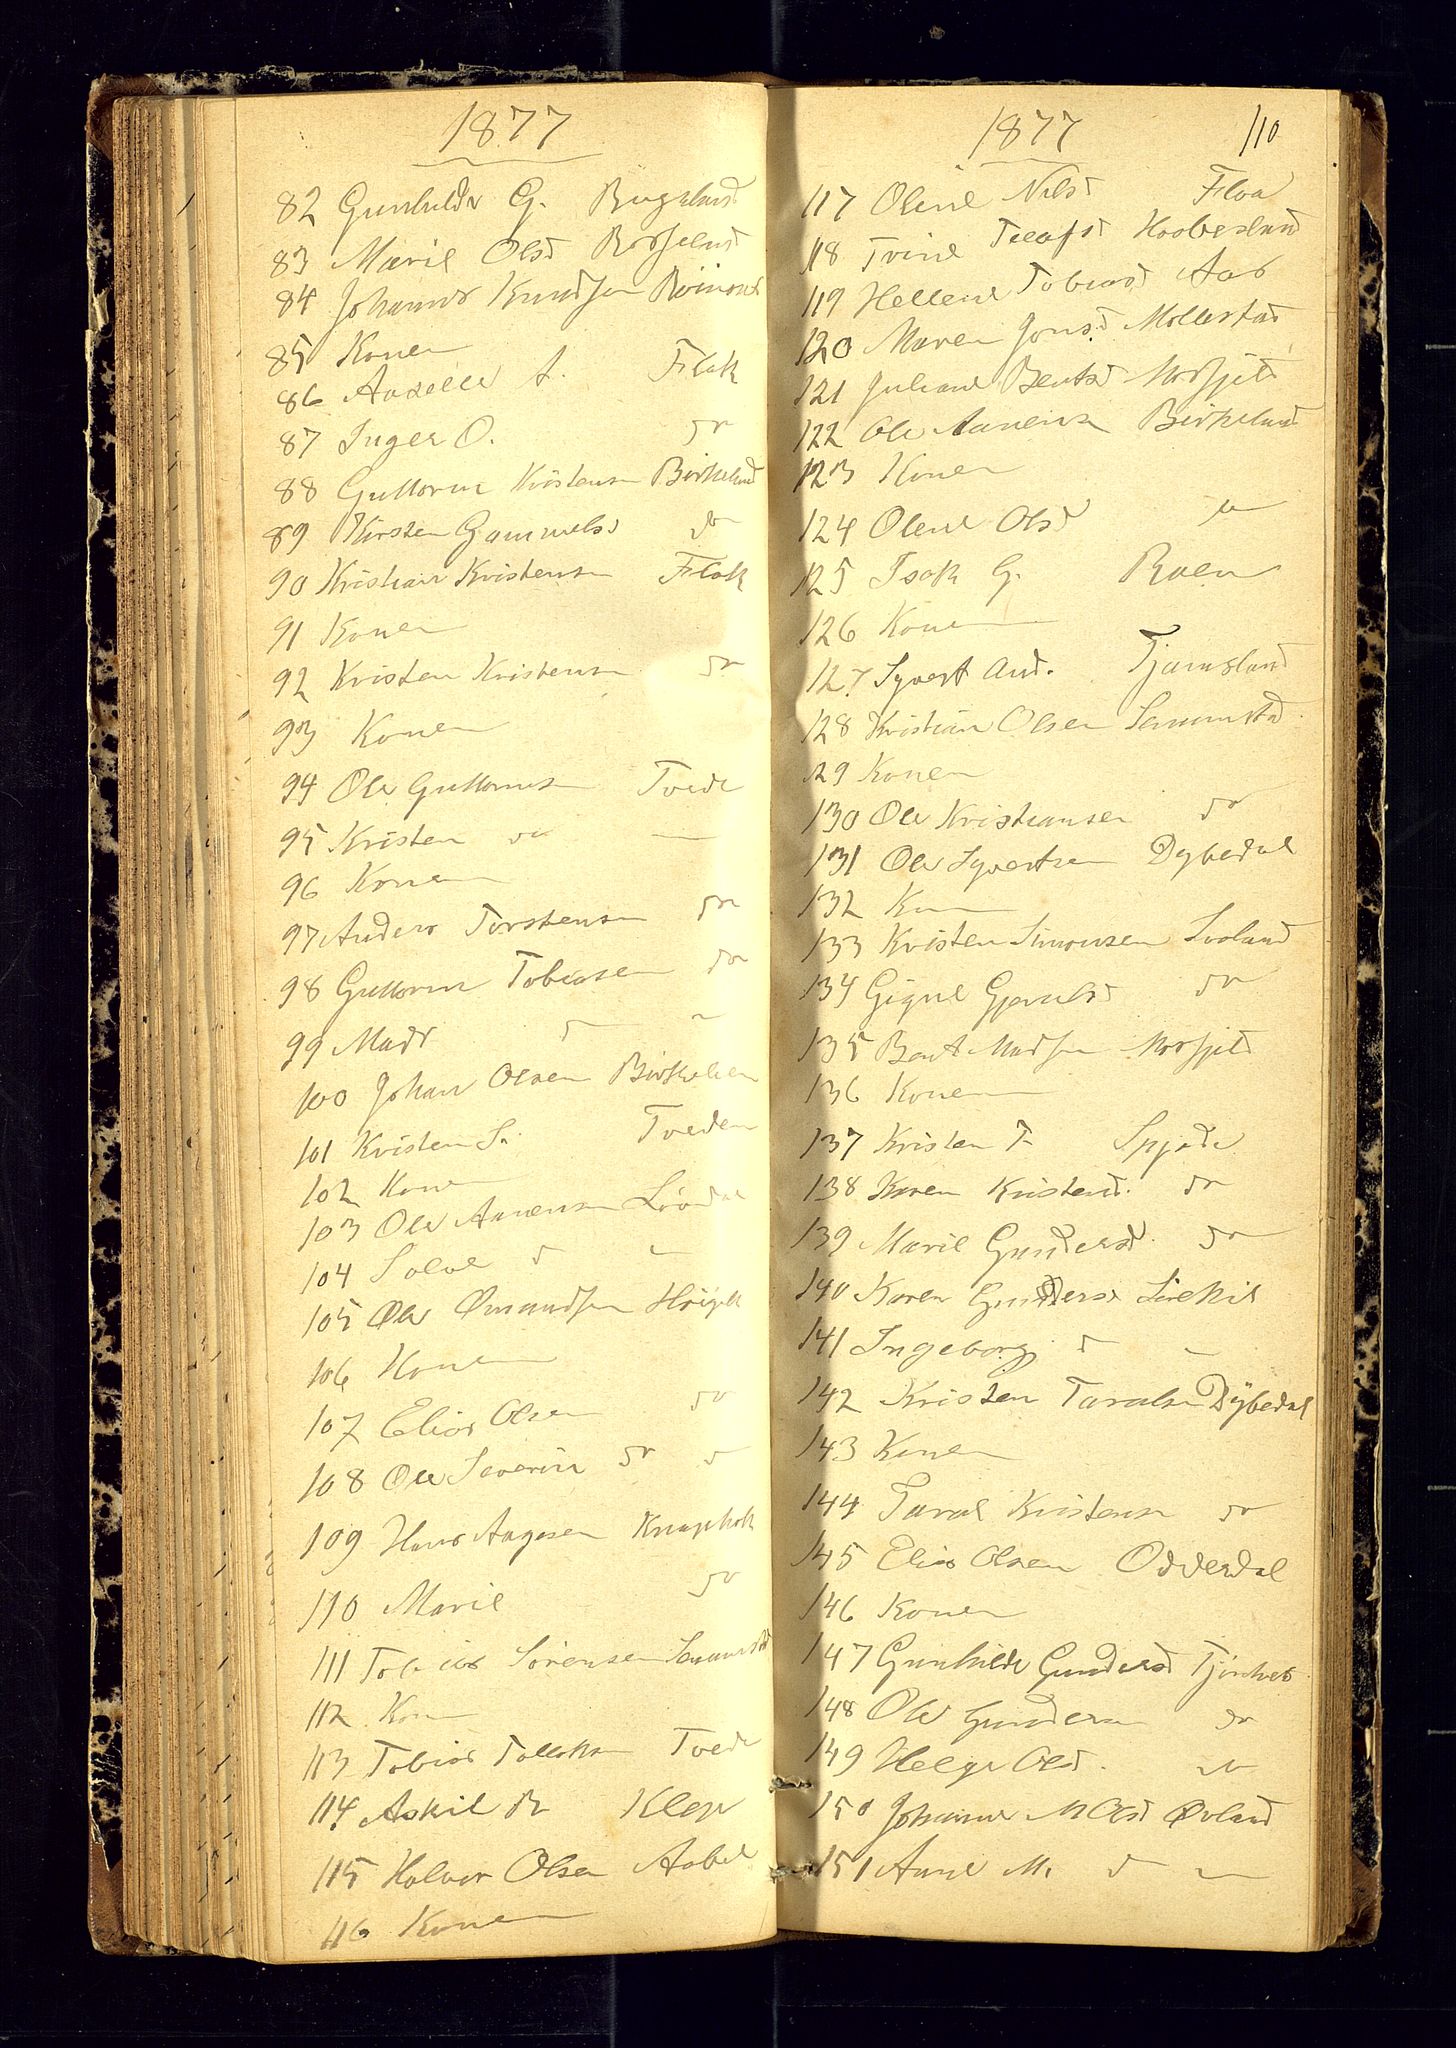 1877
82 Gunhilde G. Birgeland
83 Marie Olsd
84 Johannes Knudsen
85 Konen
86 A. Flak
87 Inger O. do
88 Guttorm Kristensen Birkeland
89 Kirsten Gammelsd do
90 Kristian Kristensen Flak
91 Konen
92 Kristen Kristensen do
93 Konen
94 Ole Guttormsen Tvede
95 Kristen do —
96 Konen
97 Anders Torstensen do
98 Guttorm Tobiasen do
99 Mads d —
100 Johan Olsen
101 Kristen S. Tveden
102 Konen
103 Ole Aanensen
104 d —
105 Ole Omundsen
106 Konen
107 Elias Olsen do
108 Ole Severin do d
109 Hans Aagesen
110 Marie do
111 Tobias Sørensen
112 Kon
113 Tobias Tellefsen Tvede
114 Askil Klep
115 Halvor Olsen Aabel
116 Konen
1877 110
117 Oline Nilsd Floa
118 Trine Tellefsd
119 Hellene Tobiasd Aas
120 Maren Jonsd Mollestad
121 Juliane Bentsd
122 Ole Aanensen Birkeland
123 Konen
124 Olene Olsd do
125 Isak G. Roen
126 Konen
127 Syvert And. Tjamsland
128 Kristian Olsen
129 Konen
130 Ole Kristiansen do
131 Ole Syvertsen Dybedal
132 Kon
133 Kristen Simonsen
134 do
135 Bent Madsen
136 Konen
137 Kristen T.
138 Karen Kristensd. do
139 Marie Gundersd. do
140 Karen Gundersd
141 Ingeborg d —
142 Kristen Taralsen Dybedal
143 Konen
144 Taral Kristensen do
145 Elias Olsen Odderdal
146 Konen
147 Gunhilde Gundersd
148 Ole Gundersen do
149 Helge Olsd. do
150 Johanne M Olsd Øvland
151 Anne M. d —